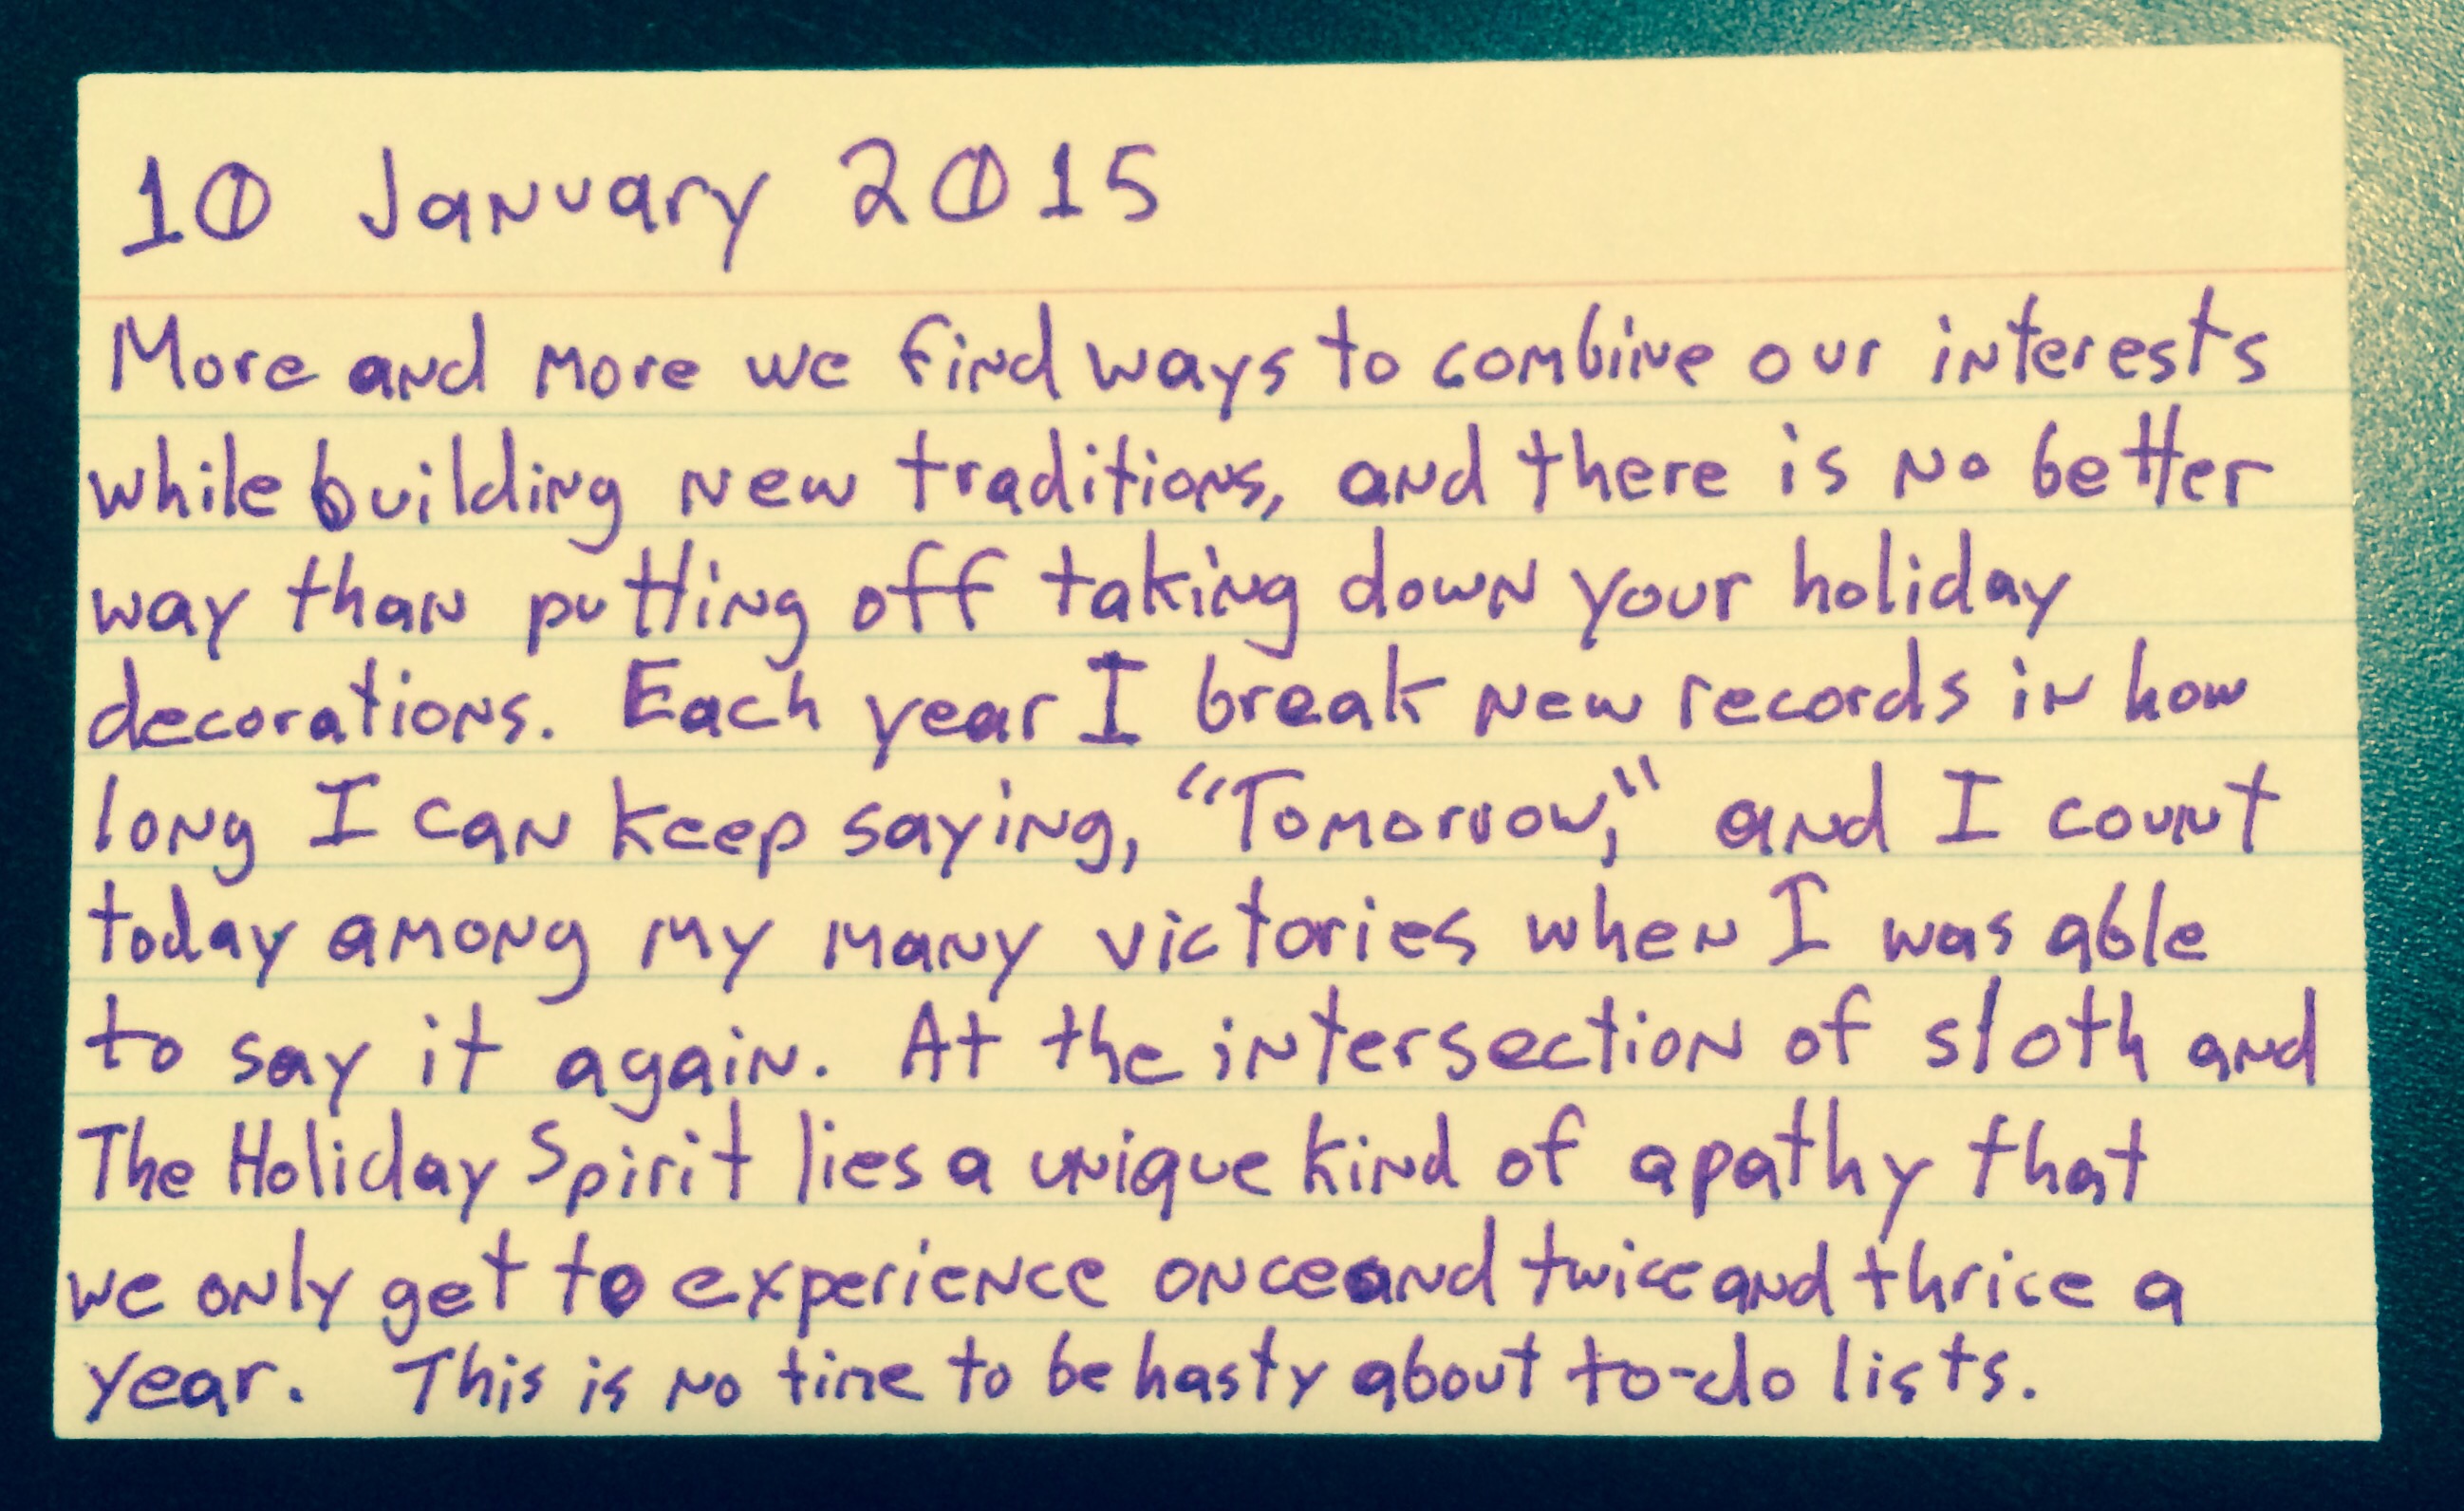 10 January 2015
More and more we find ways to combine our interests
while building new traditions, and there is no better
way than putting off taking down your holiday
decorations. Each year I break new records in how
long I can keep saying, “Tomorrow,” and I count
today among my many victories when I was able
to say it again. At the intersection of sloth and
The Holiday Spirit lies a unique kind of apathy that
we only get to experience once and twice and thrice a
year. This is no time to be hasty about to-do lists.